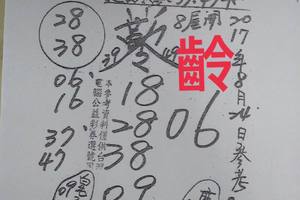 28
38
39
49
8尾開
2017年8月24日參考
齡
06
16
37
47
本參考資料僅供台
電腦公益彩券選號
18
28
38
09
06
09